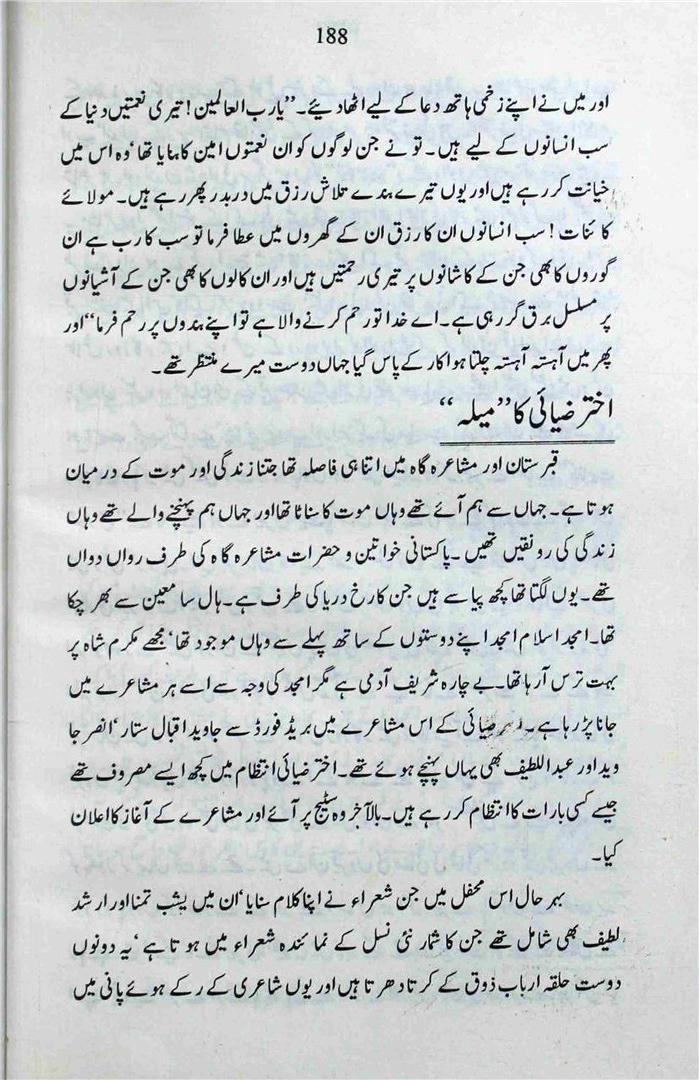 188
اور میں نے اپنے زخمی ہاتھ دعا کے لیے اٹھا دیئے۔ ”یا رب العالمین! تیری نعمتیں دنیا کے
سب انسانوں کے لیے ہیں۔ تو نے جن لوگوں کو ان نعمتوں امین کا بنایا تھا‘ وہ اس میں
خیانت کر رہے ہیں اور یوں تیرے بندے تلاش رزق میں دربدر پھر رہے ہیں۔ مولائے
کائنات! سب انسانوں ان کا رزق ان کے گھروں میں عطا فرما تو سب کا رب ہے ان
گوروں کا بھی جن کے کاشانوں پر تیری رحمتیں ہیں اور ان کالوں کا بھی جن کے آشیانوں
پر مسلسل برق گر رہی ہے۔ اے خدا تو رحم کرنے والا ہے تو اپنے بندوں پر رحم فرما“ اور
پھر میں آہستہ آہستہ چلتا ہوا کار کے پاس گیا جہاں دوست میرے منتظر تھے۔
اختر ضیائی کا ”میلہ“
قبرستان اور مشاعرہ گاہ میں اتنا ہی فاصلہ تھا جتنا زندگی اور موت کے درمیان
ہوتا ہے۔ جہاں سے ہم آئے تھے وہاں موت کا سناٹا تھا اور جہاں ہم پہنچنے والے تھے وہاں
زندگی کی رونقیں تھیں۔ پاکستانی خواتین و حضرات مشاعرہ گاہ کی طرف رواں دواں
تھے۔ یوں لگتا تھا کچھ پیاسے ہیں جن کا رخ دریا کی طرف ہے۔ ہال سامعین سے بھر چکا
تھا۔ امجد اسلام امجد اپنے دوستوں کے ساتھ پہلے سے وہاں موجود تھا‘ مجھے مکرم شاہ پر
بہت ترس آ رہا تھا۔ بے چارہ شریف آدمی ہے مگر امجد کی وجہ سے اسے ہر مشاعرے میں
جانا پڑ رہا ہے۔ ضیائی کے اس مشاعرے میں بریڈ فورڈ سے جاوید اقبال ستار‘ انصر جا
وید اور عبداللطیف بھی یہاں پہنچے ہوئے تھے۔ اختر ضیائی انتظام میں کچھ ایسے مصروف تھے
جیسے کسی بارات کا انتظام کر رہے ہیں۔ بالآخر وہ سٹیج پر آئے اور مشاعرے کے آغاز کا اعلان
کیا۔
بہر حال اس محفل میں جن شعراء نے اپنا کلام سنایا‘ ان میں یشب تمنا اور ارشد
لطیف بھی شامل تھے جن کا شمار نئی نسل کے نمائندہ شعراء میں ہوتا ہے‘ یہ دونوں
دوست حلقہ ارباب ذوق کے کرتا دھرتا ہیں اور یوں شاعری کے رکے ہوئے پانی میں